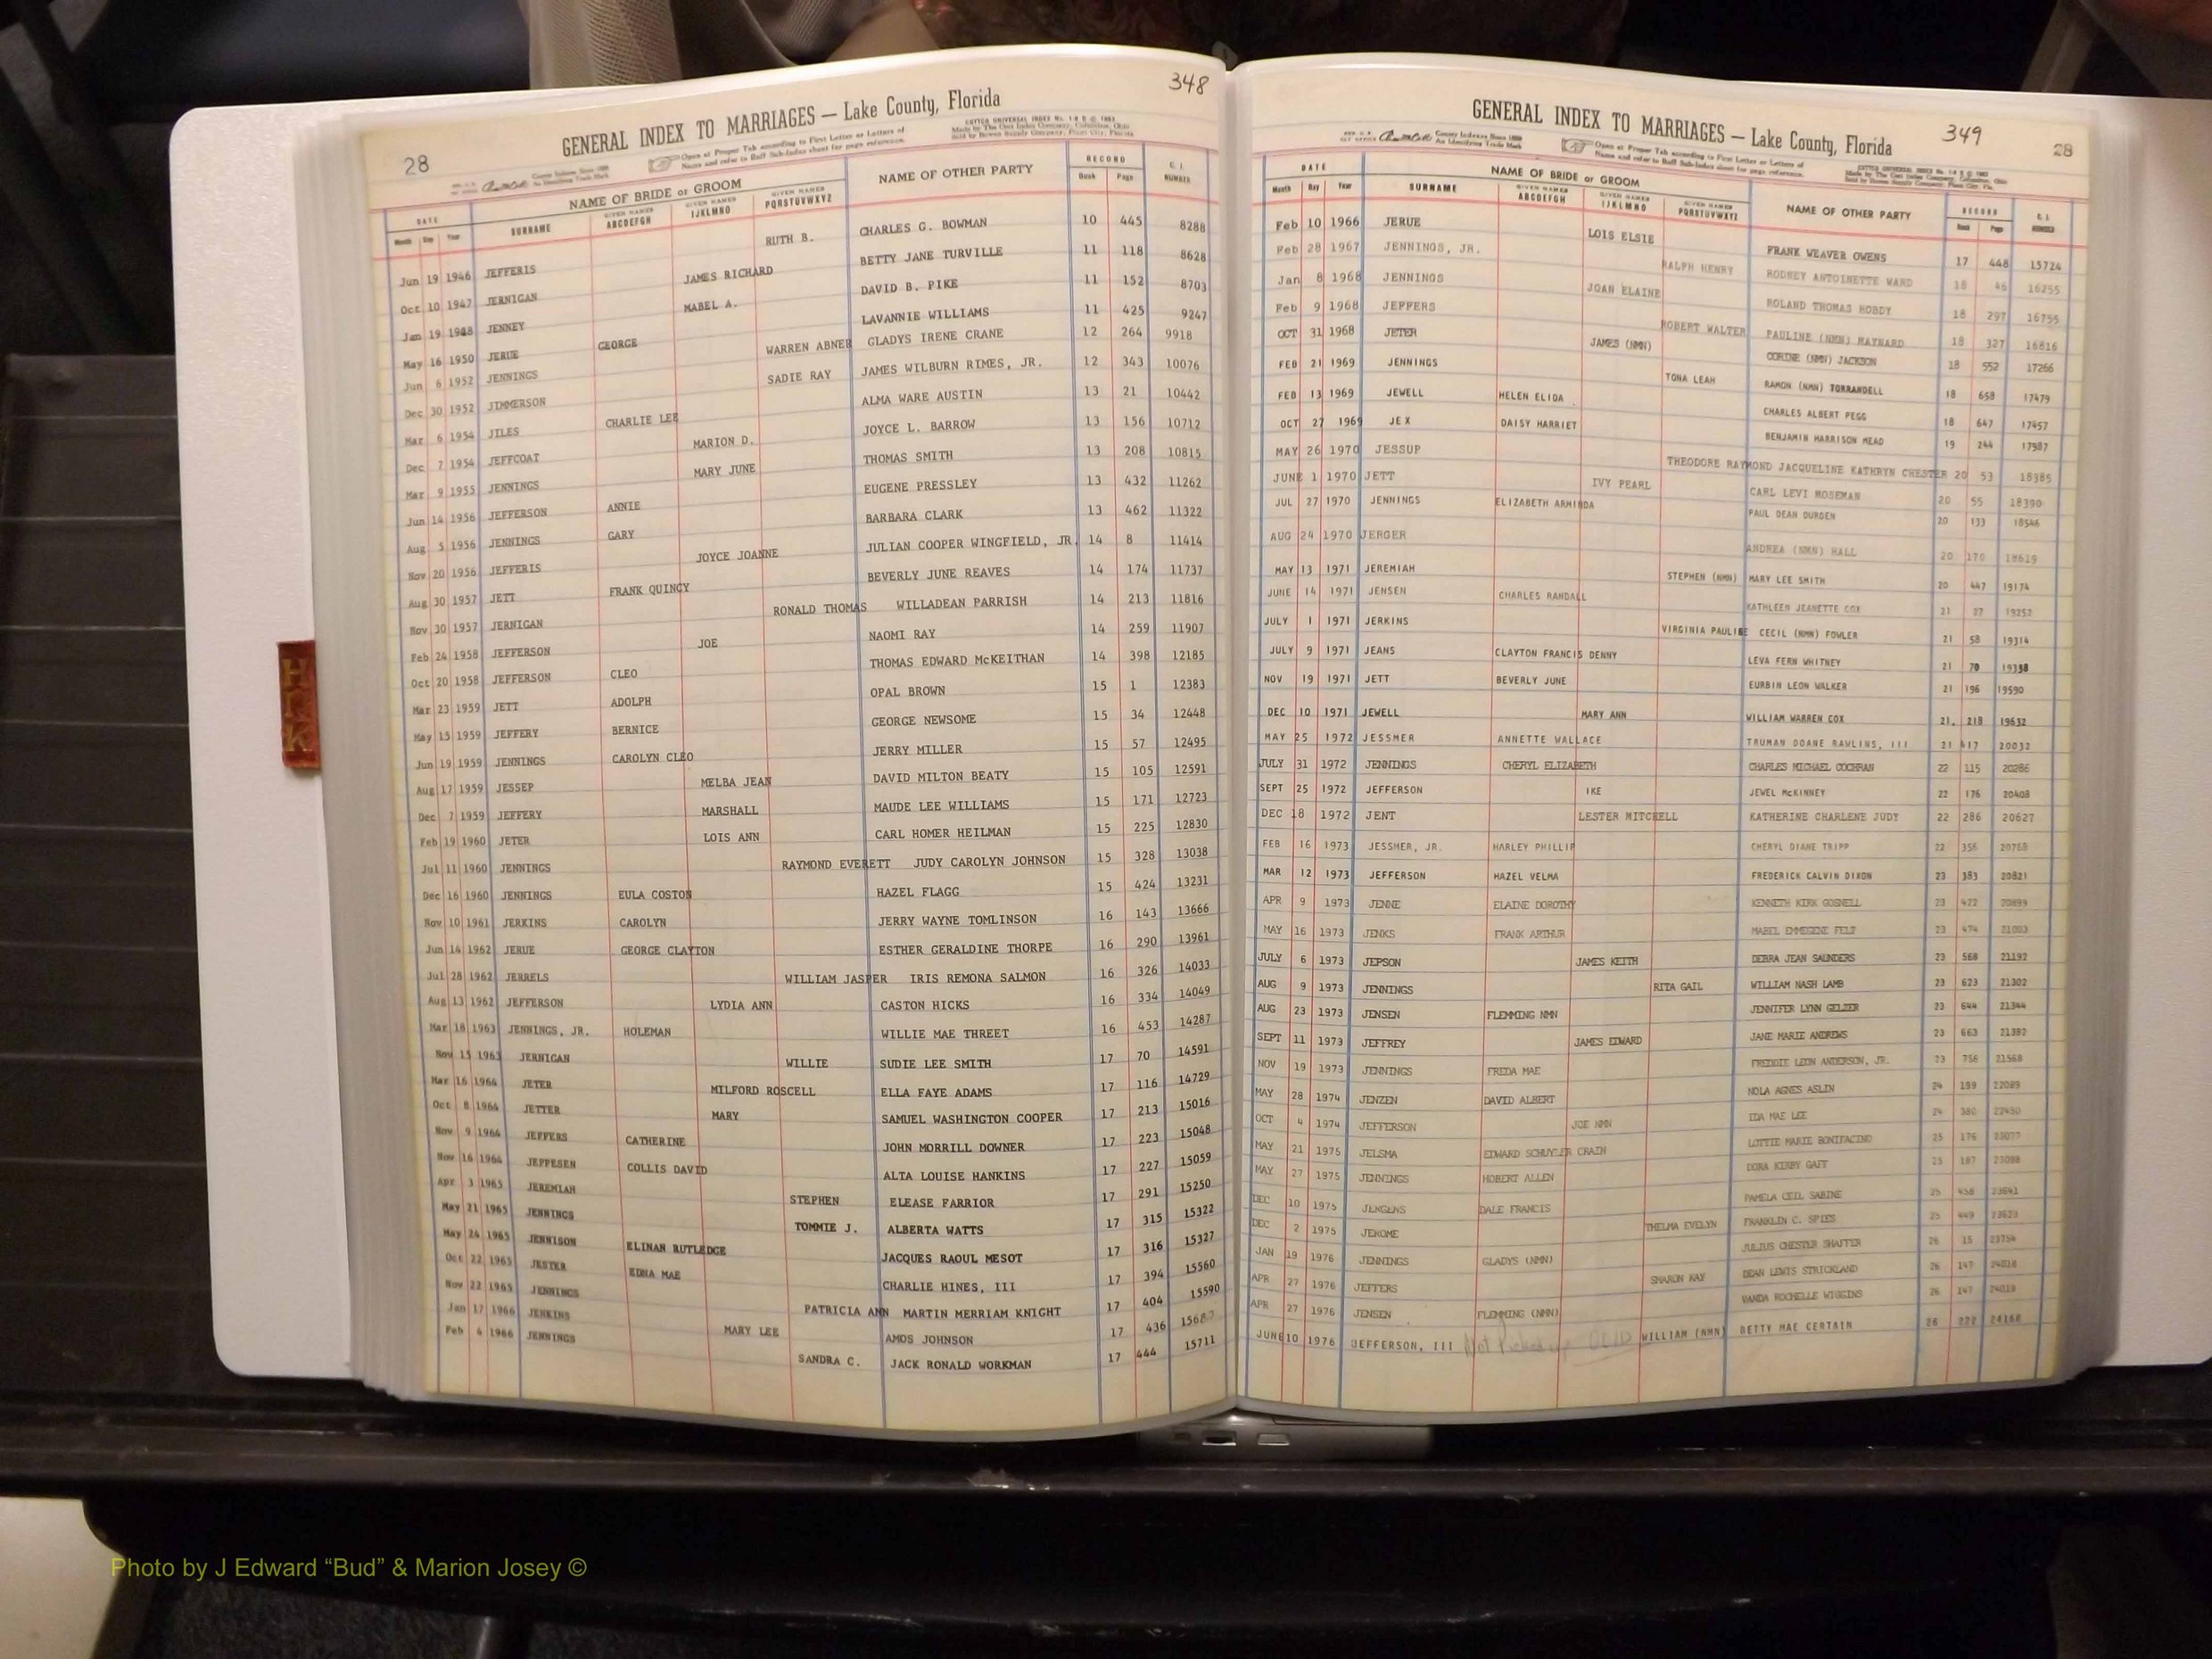 28
348
GENERAL INDEX TO MARRIAGES — Lake County, Florida
Open at Proper Tab according to First Letter or Letters of
Name and refer to Buff Sub-Index sheet for page reference.
COTT UNIVERSAL INDEX
Made by The Cott Index Company, Columbus, Ohio
Sold by Bowen Supply Company, Plant City, Florida
County Indexes Since 1888
An Identifying Trade Mark
DATE NAME OF BRIDE or GROOM NAME OF OTHER PARTY RECORD
Month Day Year SURNAME GIVEN NAMES ABCDEFGH GIVEN NAMES IJKLMNO GIVEN NAMES PQRSTUVWXYZ Book Page NUMBER
Jun 19 1946 JEFFERIS RUTH B. CHARLES G. BOWMAN 10 445 8288
Oct 10 1947 JERNIGAN JAMES RICHARD BETTY JANE TURVILLE 11 118 8628
Jan 19 1948 JENNEY MABEL A. DAVID B. PIKE 11 152 8703
May 16 1950 JERUE GEORGE LAVANNIE WILLIAMS 11 425 9247
Jun 6 1952 JENNINGS WARREN ABNER GLADYS IRENE CRANE 12 264 9918
Dec 30 1952 JIMMERSON SADIE RAY JAMES WILBURN RIMES, JR. 12 343 10076
Mar 6 1954 JILES CHARLIE LEE ALMA WARE AUSTIN 13 21 10442
Dec 7 1954 JEFFCOAT MARION D. JOYCE L. BARROW 13 156 10712
Mar 9 1955 JENNINGS MARY JUNE THOMAS SMITH 13 208 10815
Jun 14 1956 JEFFERSON ANNIE EUGENE PRESSLEY 13 432 11262
Aug 5 1956 JENNINGS GARY BARBARA CLARK 13 462 11322
Nov 20 1956 JEFFERIS JOYCE JOANNE JULIAN COOPER WINGFIELD, JR. 14 8 11414
Aug 30 1957 JETT FRANK QUINCY BEVERLY JUNE REAVES 14 174 11737
Nov 30 1957 JERNIGAN RONALD THOMAS WILLADEAN PARRISH 14 213 11816
Feb 24 1958 JEFFERSON JOE NAOMI RAY 14 259 11907
Oct 20 1958 JEFFERSON CLEO THOMAS EDWARD McKEITHAN 14 398 12185
Mar 23 1959 JETT ADOLPH OPAL BROWN 15 1 12383
May 15 1959 JEFFERY BERNICE GEORGE NEWSOME 15 34 12448
Jun 19 1959 JENNINGS CAROLYN CLEO JERRY MILLER 15 57 12495
Aug 17 1959 JESSEP MELBA JEAN DAVID MILTON BEATY 15 105 12591
Dec 7 1959 JEFFERY MARSHALL MAUDE LEE WILLIAMS 15 171 12723
Feb 19 1960 JETER LOIS ANN CARL HOMER HEILMAN 15 225 12830
Jul 11 1960 JENNINGS RAYMOND EVERETT JUDY CAROLYN JOHNSON 15 328 13038
Dec 16 1960 JENNINGS EULA COSTON HAZEL FLAGG 15 424 13231
Nov 10 1961 JERKINS CAROLYN JERRY WAYNE TOMLINSON 16 143 13666
Jun 14 1962 JERUE GEORGE CLAYTON ESTHER GERALDINE THORPE 16 290 13961
Jul 28 1962 JERRELS WILLIAM JASPER IRIS REMONA SALMON 16 326 14033
Aug 13 1962 JEFFERSON LYDIA ANN CASTON HICKS 16 334 14049
Mar 18 1963 JENNINGS, JR. HOLEMAN WILLIE MAE THREET 16 453 14287
Nov 15 1963 JERNIGAN WILLIE SUDIE LEE SMITH 17 70 14591
Mar 16 1964 JETER MILFORD ROSCELL ELLA FAYE ADAMS 17 116 14729
Oct 8 1964 JETTER MARY SAMUEL WASHINGTON COOPER 17 213 15016
Nov 9 1964 JEFFERS CATHERINE JOHN MORRILL DOWNER 17 223 15048
Nov 16 1964 JEPPESEN COLLIS DAVID ALTA LOUISE HANKINS 17 227 15059
Apr 3 1965 JEREMIAH STEPHEN ELEASE FARRIOR 17 291 15250
May 21 1965 JENNINGS TOMMIE J. ALBERTA WATTS 17 315 15322
May 24 1965 JENNISON ELINAN RUTLEDGE JACQUES RAOUL MESOT 17 316 15327
Oct 22 1965 JESTER EDNA MAE CHARLIE HINES, III 17 394 15560
Nov 22 1965 JENNINGS PATRICIA ANN MARTIN MERRIAM KNIGHT 17 404 15590
Jan 17 1966 JENKINS MARY LEE AMOS JOHNSON 17 436
Feb 4 1966 JENNINGS SANDRA C. JACK RONALD WORKMAN 17 444 15711
HIJK
GENERAL INDEX TO MARRIAGES — Lake County, Florida
349
28
County Indexes Since 1888
An Identifying Trade Mark
Open at Proper Tab according to First Letter or Letters of
Name and refer to Buff Sub-Index sheet for page reference.
DATE NAME OF BRIDE or GROOM NAME OF OTHER PARTY RECORD
Month Day Year SURNAME GIVEN NAMES ABCDEFGH GIVEN NAMES IJKLMNO GIVEN NAMES PQRSTUVWXYZ Book Page NUMBER
Feb 10 1966 JERUE LOIS ELSIE FRANK WEAVER OWENS 17 448 15724
Feb 28 1967 JENNINGS, JR. RALPH HENRY RODNEY ANTOINETTE WARD 18 46 16255
Jan 8 1968 JENNINGS JOAN ELAINE ROLAND THOMAS HOBDY 18 297 16755
Feb 9 1968 JEFFERS ROBERT WALTER PAULINE (NMN) MAYNARD 18 327 16816
OCT 31 1968 JETER JAMES (NMN) CORINE (NMN) JACKSON 18 552 17266
FEB 21 1969 JENNINGS TONA LEAH RAMON (NMN) TORRANDELL 18 658 17479
FEB 13 1969 JEWELL HELEN ELIDA CHARLES ALBERT PEGG 18 647 17457
OCT 27 1969 JEX DAISY HARRIET BENJAMIN HARRISON MEAD 19 244 17987
MAY 26 1970 JESSUP THEODORE RAYMOND JACQUELINE KATHRYN CHESTER 20 53 18385
JUNE 1 1970 JETT IVY PEARL CARL LEVI MOSEMAN 20 55 18390
JUL 27 1970 JENNINGS ELIZABETH ARMINDA PAUL DEAN DURDEN 20 133 18546
AUG 24 1970 JERGER ANDREA (NMN) HALL 20 170 18619
MAY 13 1971 JEREMIAH STEPHEN (NMN) MARY LEE SMITH 20 447 19174
JUNE 14 1971 JENSEN CHARLES RANDALL KATHLEEN JEANETTE COX 21 27 19252
JULY 1 1971 JERKINS VIRGINIA PAULINE CECIL (NMN) FOWLER 21 58 19314
JULY 9 1971 JEANS CLAYTON FRANCIS DENNY LEVA FERN WHITNEY 21 70 19338
NOV 19 1971 JETT BEVERLY JUNE EURBIN LEON WALKER 21 196 19590
DEC 10 1971 JEWELL MARY ANN WILLIAM WARREN COX 21. 218 19632
MAY 25 1972 JESSMER ANNETTE WALLACE TRUMAN DOANE RAWLINS, III 21 417 20032
JULY 31 1972 JENNINGS CHERYL ELIZABETH CHARLES MICHAEL COCHRAN 22 115 20286
SEPT 25 1972 JEFFERSON IKE JEWEL McKINNEY 22 176 20408
DEC 18 1972 JENT LESTER MITCHELL KATHERINE CHARLENE JUDY 22 286 20627
FEB 16 1973 JESSMER, JR. HARLEY PHILLIP CHERYL DIANE TRIPP 22 356 20768
MAR 12 1973 JEFFERSON HAZEL VELMA FREDERICK CALVIN DIXON 23 383 20821
APR 9 1973 JENNE ELAINE DOROTHY KENNETH KIRK GOSNELL 23 422 20899
MAY 16 1973 JENKS FRANK ARTHUR MABEL EMMEGENE FELT 23 474 21003
JULY 6 1973 JEPSON JAMES KEITH DEBRA JEAN SAUNDERS 23 568 21192
AUG 9 1973 JENNINGS RITA GAIL WILLIAM NASH LAMB 23 623 21302
AUG 23 1973 JENSEN FLEMMING NMN JENNIFER LYNN GELZER 23 644 21344
SEPT 11 1973 JEFFREY JAMES EDWARD JANE MARIE ANDREWS 23 663 21382
NOV 19 1973 JENNINGS FREDA MAE FREDDIE LEON ANDERSON, JR. 23 756 21568
MAY 28 1974 JENZEN DAVID ALBERT NOLA AGNES ASLIN 24 199 22089
OCT 4 1974 JEFFERSON JOE NMN IDA MAE LEE 24 380 22450
MAY 21 1975 JELSMA EDWARD SCHUYLER CRAIN LOTTIE MARIE BONIFACINO 25 176 23077
MAY 27 1975 JENNINGS HOBERT ALLEN DORA KIRBY GAFF 25 187 23098
DEC 10 1975 JENGENS DALE FRANCIS PAMELA CEIL SABINE 25 458 23641
DEC 2 1975 JEROME THELMA EVELYN FRANKLIN C. SPIES 25 449 23623
JAN 19 1976 JENNINGS GLADYS (NMN) JULIUS CHESTER SHAFFER 26 15 23754
APR 27 1976 JEFFERS SHARON KAY DEAN LEWIS STRICKLAND 26 147 24018
APR 27 1976 JENSEN FLEMMING (NMN) VANDA ROCHELLE WIGGINS 26 147 24019
JUNE 10 1976 JEFFERSON, III Not WILLIAM (NMN) BETTY MAE CERTAIN 26 222 24168
Photo by J Edward “Bud” & Marion Josey ©